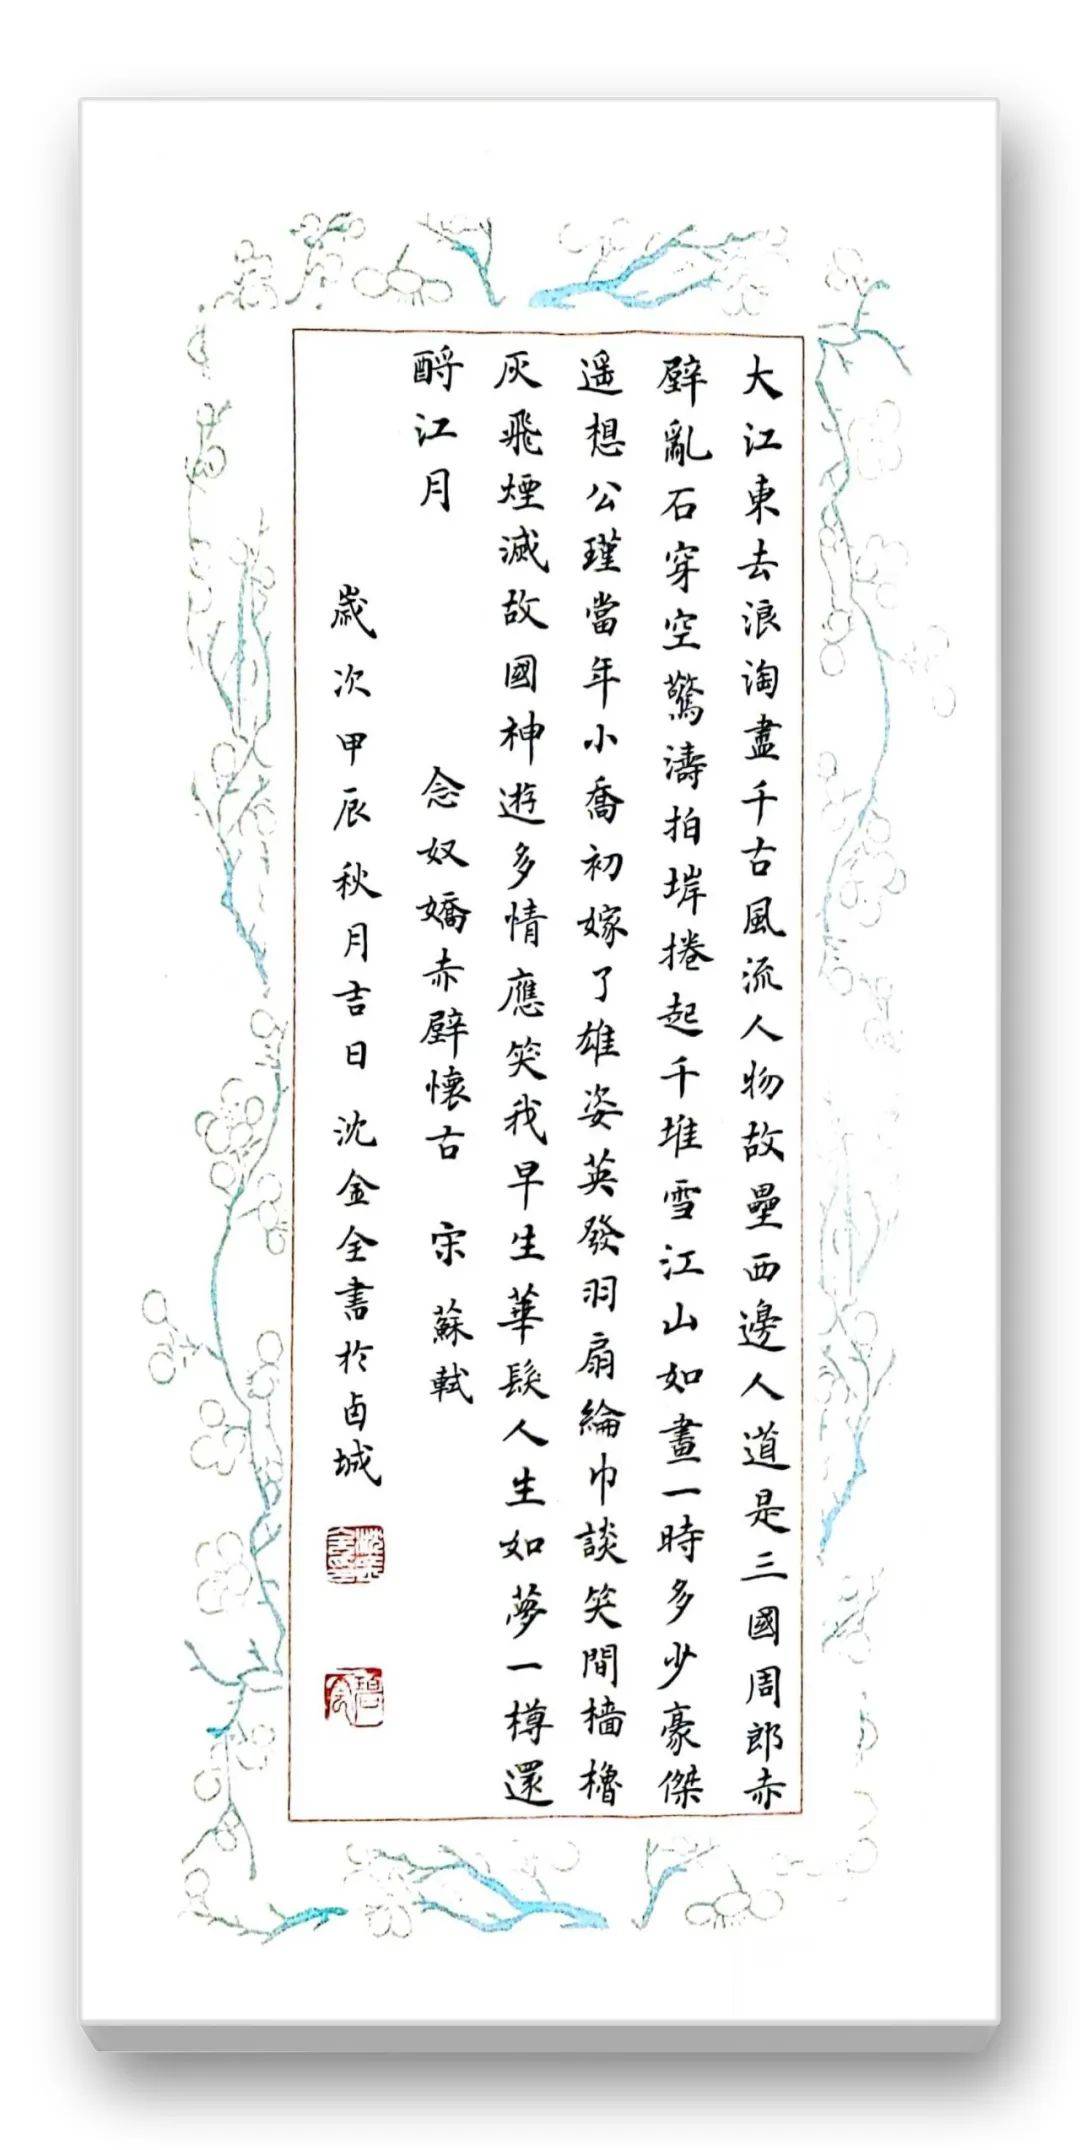 大江東去浪淘盡千古風流人物故壘西邊人道是三國周郎赤
壁亂石穿空驚濤拍岸捲起千堆雪江山如畫一時多少豪傑
遥想公瑾當年小喬初嫁了雄姿英發羽扇綸巾談笑間檣櫓
灰飛煙滅故國神遊多情應笑我早生華髮人生如夢一樽還
酹江月 念奴嬌赤壁懷古 宋 蘇軾
歲次甲辰秋月吉日 沈金全書於卤城